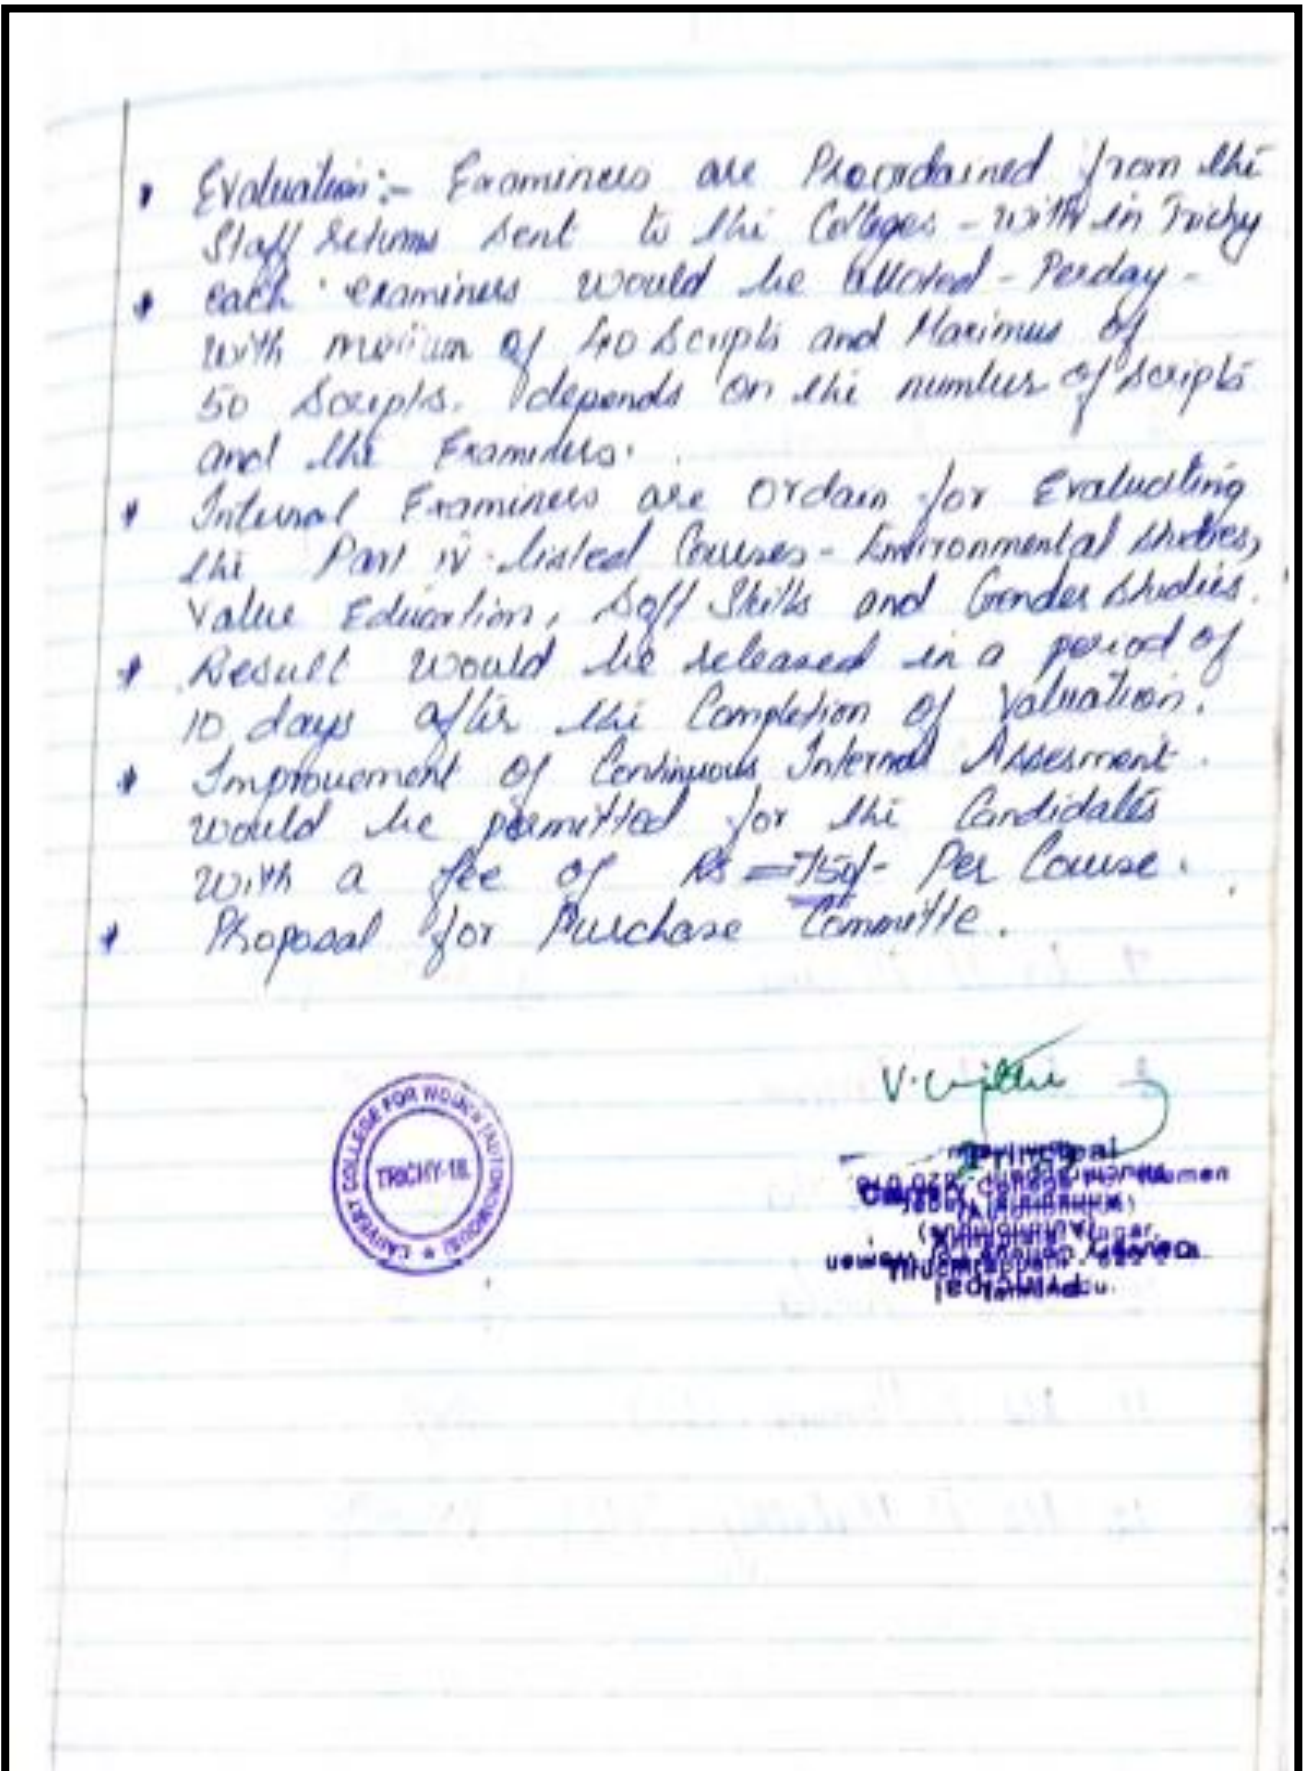 • Evaluation:- Examiners are Preordained from the
Staff returns sent to the Colleges - with in Trichy
• each examiners would be alloted - Perday -
with of 40 scripts and Maximus of
50 scripts. depends on the number of scripts
and the Examiners.
• Internal Examiners are ordain for Evaluating
the Part IV listed Courses - Environmental studies,
Value Education, Soff Skills and Gender studies.
• Result would be released in a period of
10 days after the Completion of Valuation.
• Improvement of Continuous Internal Assesment.
would be permitted for the Candidates
with a fee of Rs =750/- Per Course.
• Proposal for Purchase Committe.
CAUVERY COLLEGE FOR WOMEN (AUTONOMOUS)
TRICHY-18.
Principal